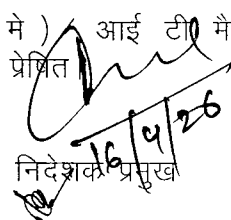 मे ) आई टी मै
प्रेषित
16/4/26
निदेशक प्रमुख